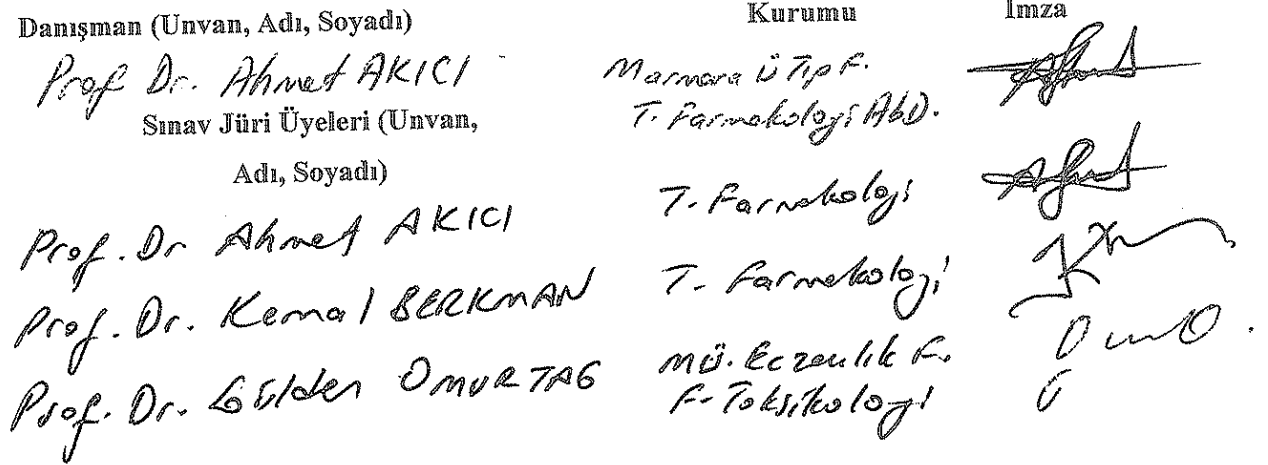 Danışman (Unvan, Adı, Soyadı) Kurumu İmza
Prof Dr. Ahmet AKICI Marmara Ü Tıp F.
T. Farmakoloji AbD.
Sınav Jüri Üyeleri (Unvan,
Adı, Soyadı)
Prof. Dr Ahmet AKICI T. Farmakoloji
Prof. Dr. Kemal BERKMAN T. Farmakoloji
Prof. Dr. Gülden OMURTAG MÜ. Eczacılık F.
F. Toksikoloji